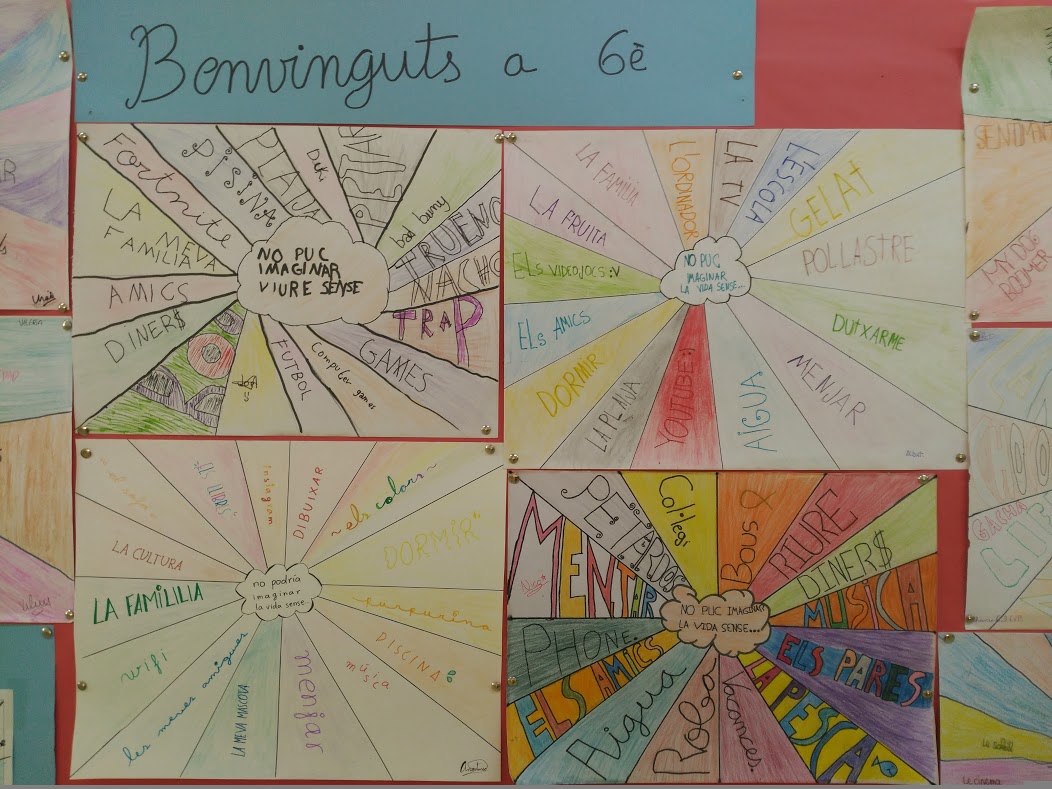 Benvinguts a 6è
Fortnite
PISINA
PLATJA
Duki
bad buny
TRUENO
NACHO
TRAP
GAMES
Computer games
FUTBOL
DINER$
AMICS
LA MEVA
FAMILIA
NO PUC
IMAGINAR
VIURE SENSE
LA FAMÍLIA
L'ORDINADOR
LA TV
L'ESCOLA
GELAT
POLLASTRE
DUTXARME
MENJAR
AIGUA
YOUTUBE:)
LA PLATJA
DORMIR
ELS AMICS
ELS VIDEOJOCS:V
LA FRUITA
NO PUC
IMAGINAR
LA VIDA SENSE...
ELS LLIBRES
Instagram
DIBUIXAR
~els colors~
DORMIR
purpurina
PISCINA
música
menjar
LA MEVA MASCOTA
les meves amigues
wifi
LA FAMILILIA
LA CULTURA
no podria
imaginar
la vida sense...
MENTAR
PETARDOS
Col·legs
Bous
RIURE
DINER$
MUSICA
ELS PARES
LA PESCA
Vacances.
Roba
Aigua
ELS AMICS
PHONE.
NO PUC IMAGINAR
LA VIDA SENSE...
MY DOG
BOOMER
VALERIA
La cinema